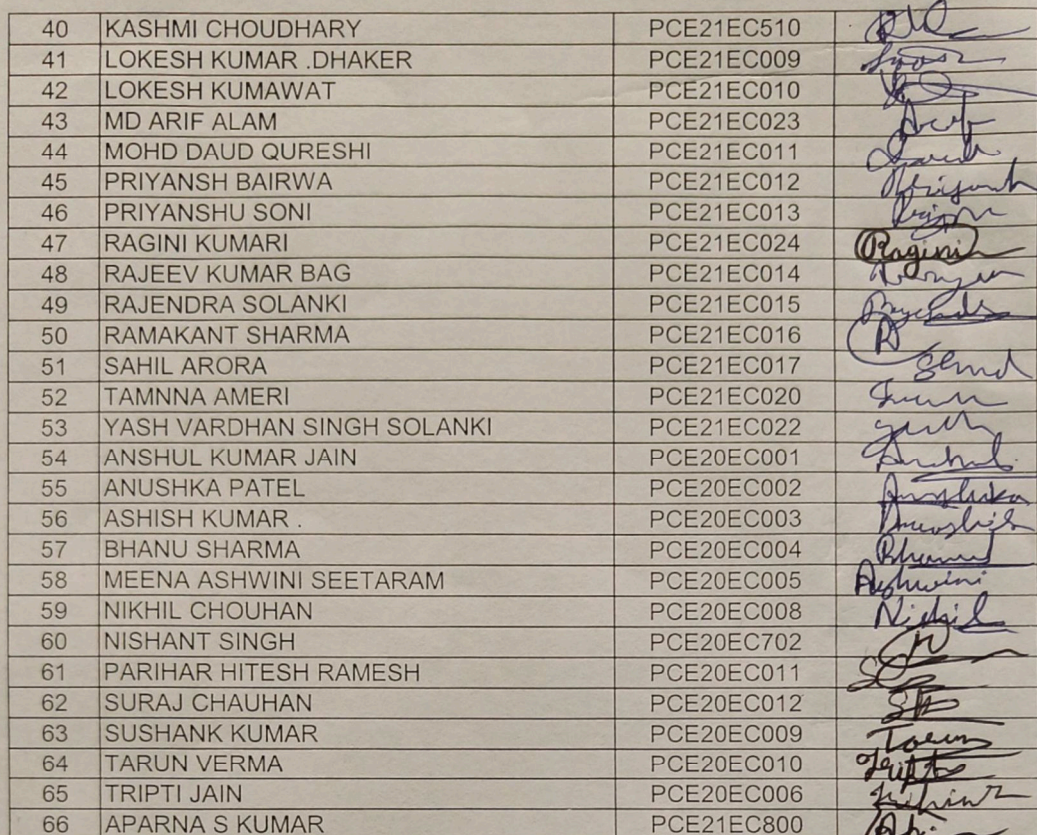 40 KASHMI CHOUDHARY PCE21EC510
41 LOKESH KUMAR .DHAKER PCE21EC009
42 LOKESH KUMAWAT PCE21EC010
43 MD ARIF ALAM PCE21EC023
44 MOHD DAUD QURESHI PCE21EC011
45 PRIYANSH BAIRWA PCE21EC012
46 PRIYANSHU SONI PCE21EC013
47 RAGINI KUMARI PCE21EC024 Ragini
48 RAJEEV KUMAR BAG PCE21EC014
49 RAJENDRA SOLANKI PCE21EC015
50 RAMAKANT SHARMA PCE21EC016 R
51 SAHIL ARORA PCE21EC017
52 TAMNNA AMERI PCE21EC020
53 YASH VARDHAN SINGH SOLANKI PCE21EC022
54 ANSHUL KUMAR JAIN PCE20EC001
55 ANUSHKA PATEL PCE20EC002 Anushka
56 ASHISH KUMAR . PCE20EC003
57 BHANU SHARMA PCE20EC004 Bhanu
58 MEENA ASHWINI SEETARAM PCE20EC005 Ashwini
59 NIKHIL CHOUHAN PCE20EC008 Nikhil
60 NISHANT SINGH PCE20EC702
61 PARIHAR HITESH RAMESH PCE20EC011
62 SURAJ CHAUHAN PCE20EC012
63 SUSHANK KUMAR PCE20EC009
64 TARUN VERMA PCE20EC010 Tarun
65 TRIPTI JAIN PCE20EC006 Tripti
66 APARNA S KUMAR PCE21EC800